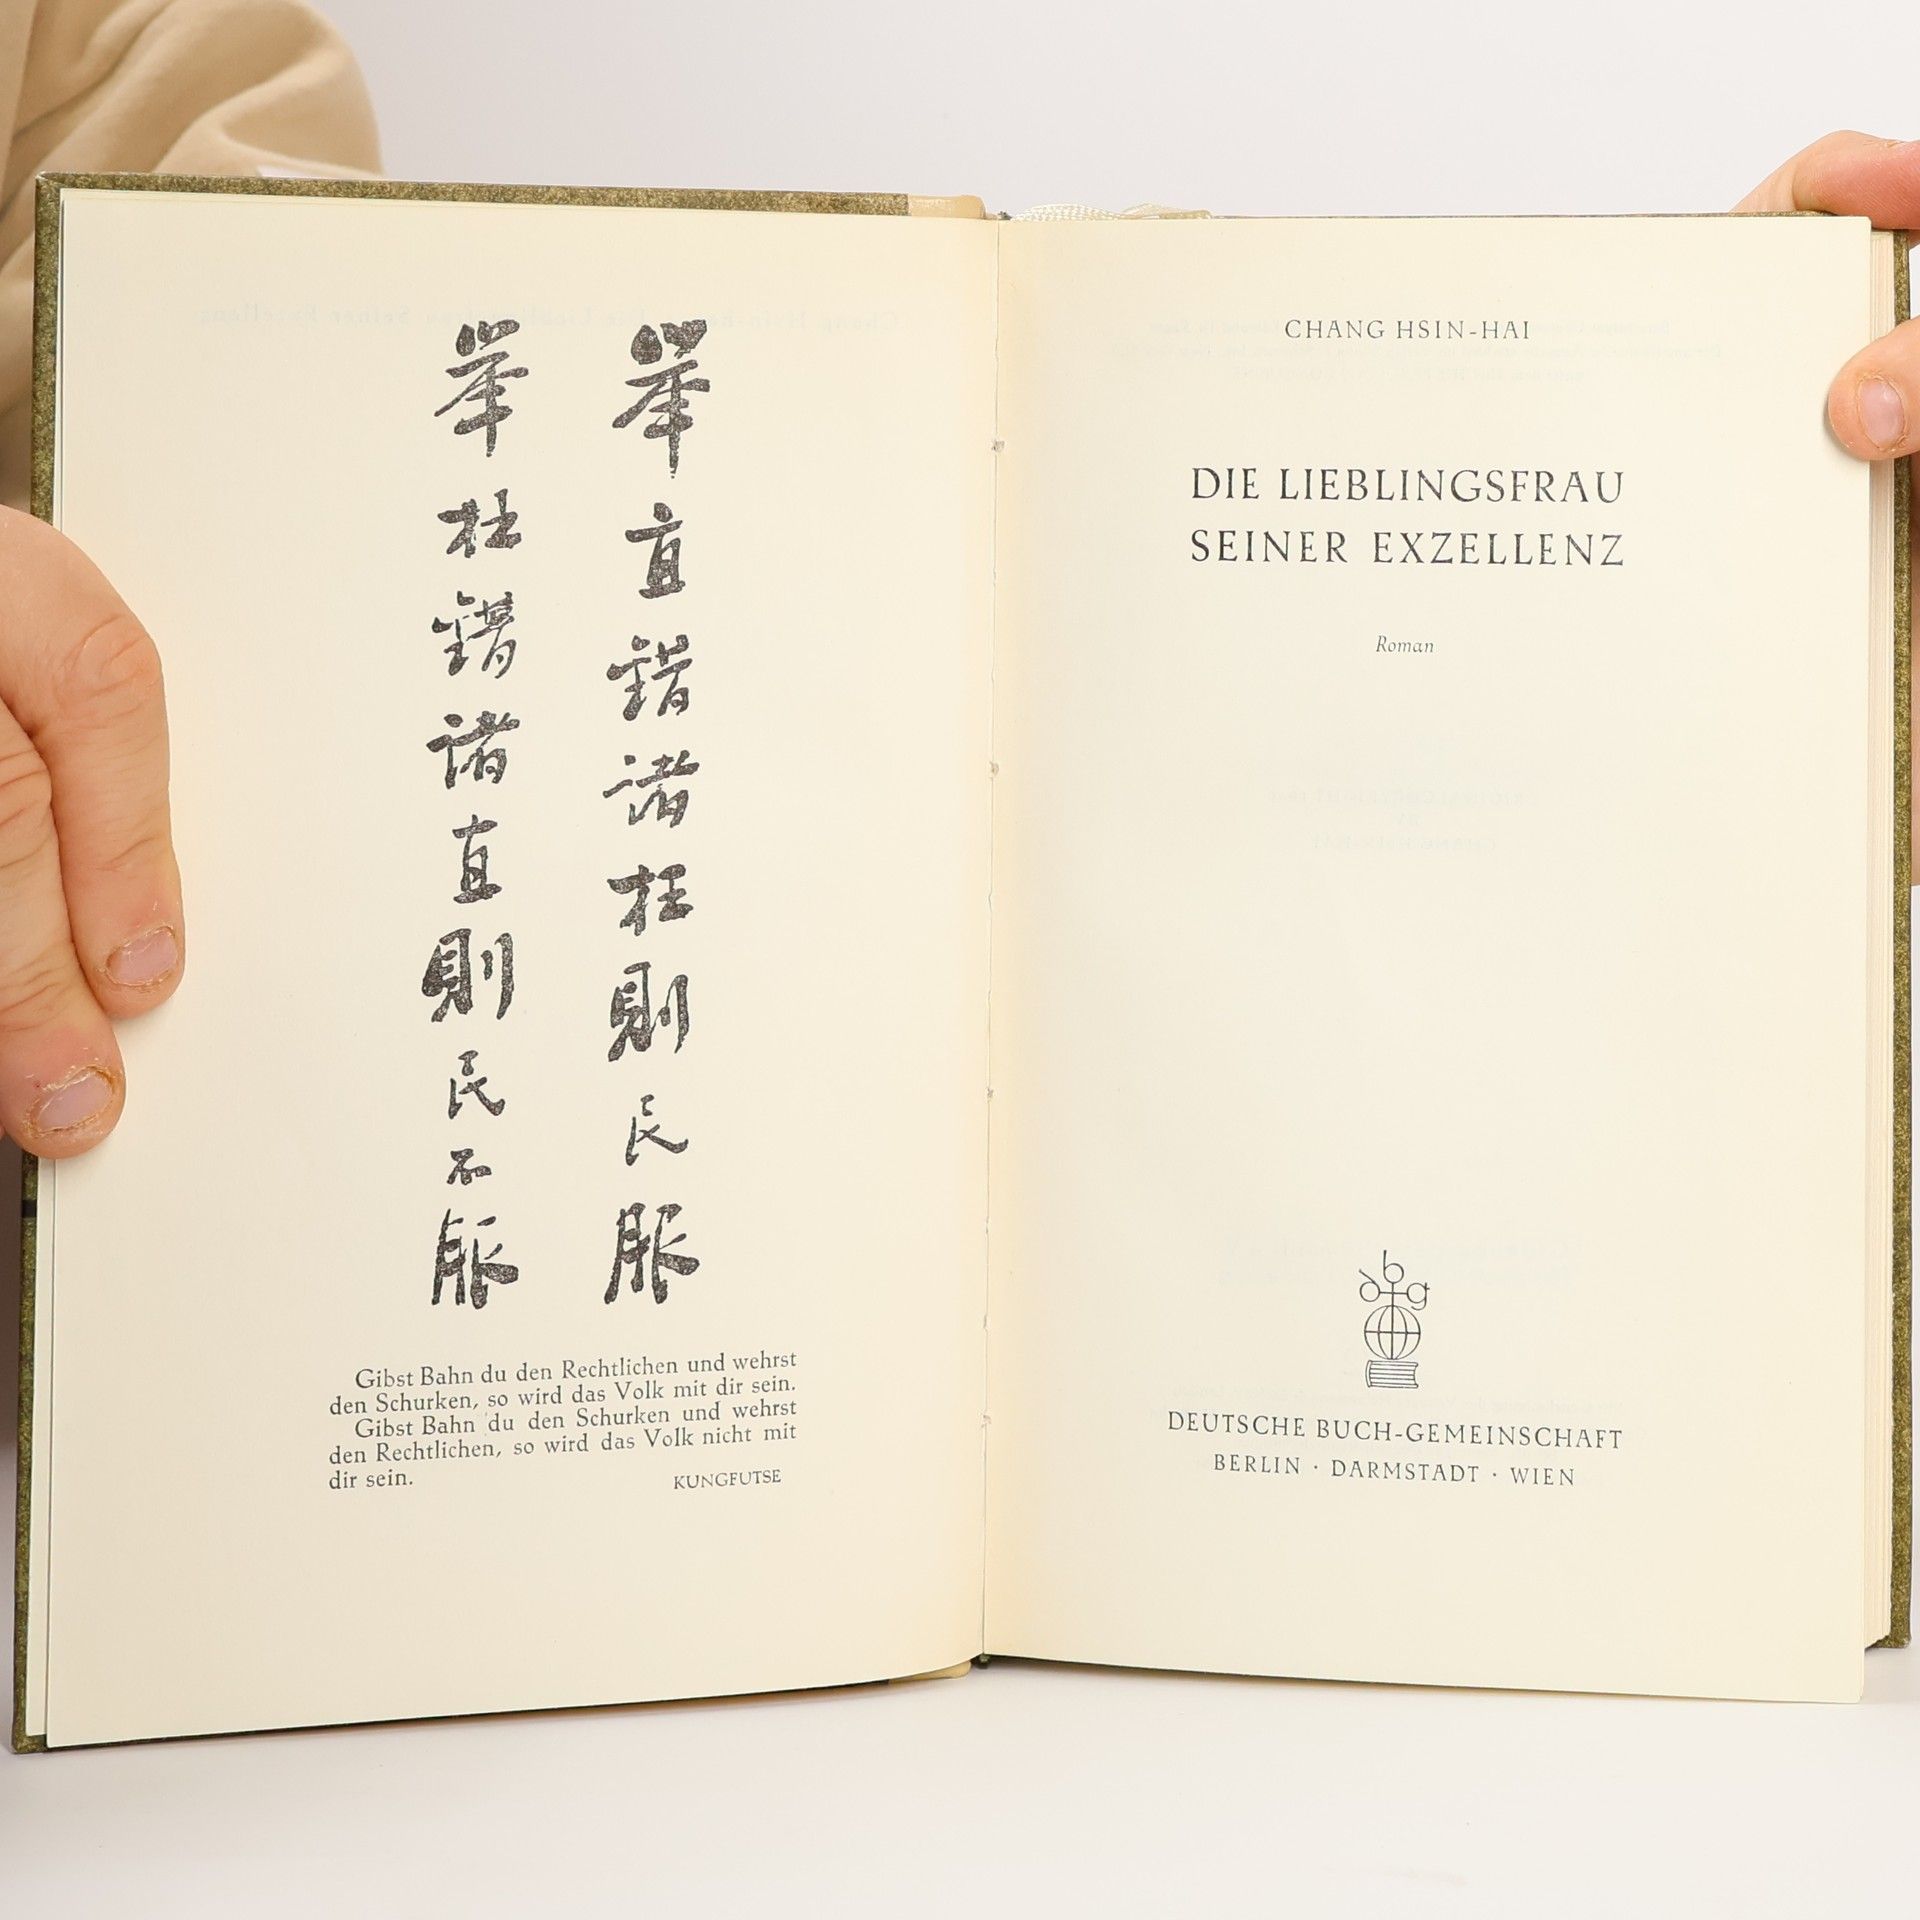 舉直錯諸枉則民服
舉枉錯諸直則民不服
Gibst Bahn du den Rechtlichen und wehrst
den Schurken, so wird das Volk mit dir sein.
Gibst Bahn du den Schurken und wehrst
den Rechtlichen, so wird das Volk nicht mit
dir sein.
KUNGFUTSE
CHANG HSIN-HAI
DIE LIEBLINGSFRAU
SEINER EXZELLENZ
Roman
dbg
DEUTSCHE BUCH-GEMEINSCHAFT
BERLIN · DARMSTADT · WIEN